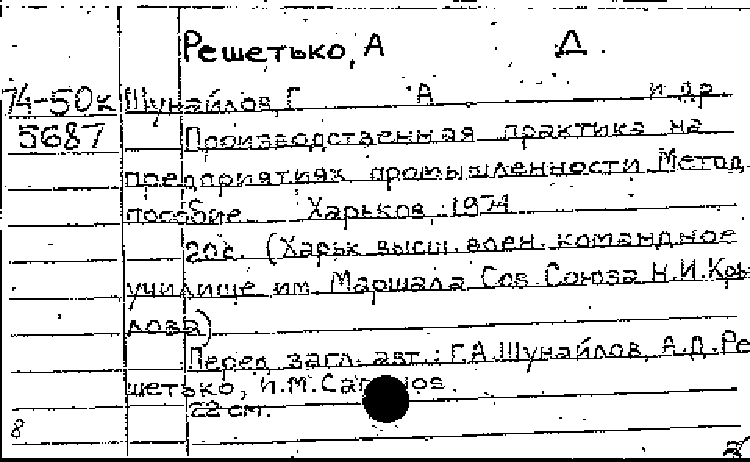 Решетько, А Д.
74-50к Шунайлов, Г А и др.
5687 Производственная практика на
предприятиях промышленности. Метод.
пособие. Харьков, 1974.
20с. (Харьк. высш. воен. командное
училище им. Маршала Сов. Союза Н.И.Кры
лова)
Перед загл. авт.: Г.А.Шунайлов, А.Д.Ре
шетько,
22 см.
8